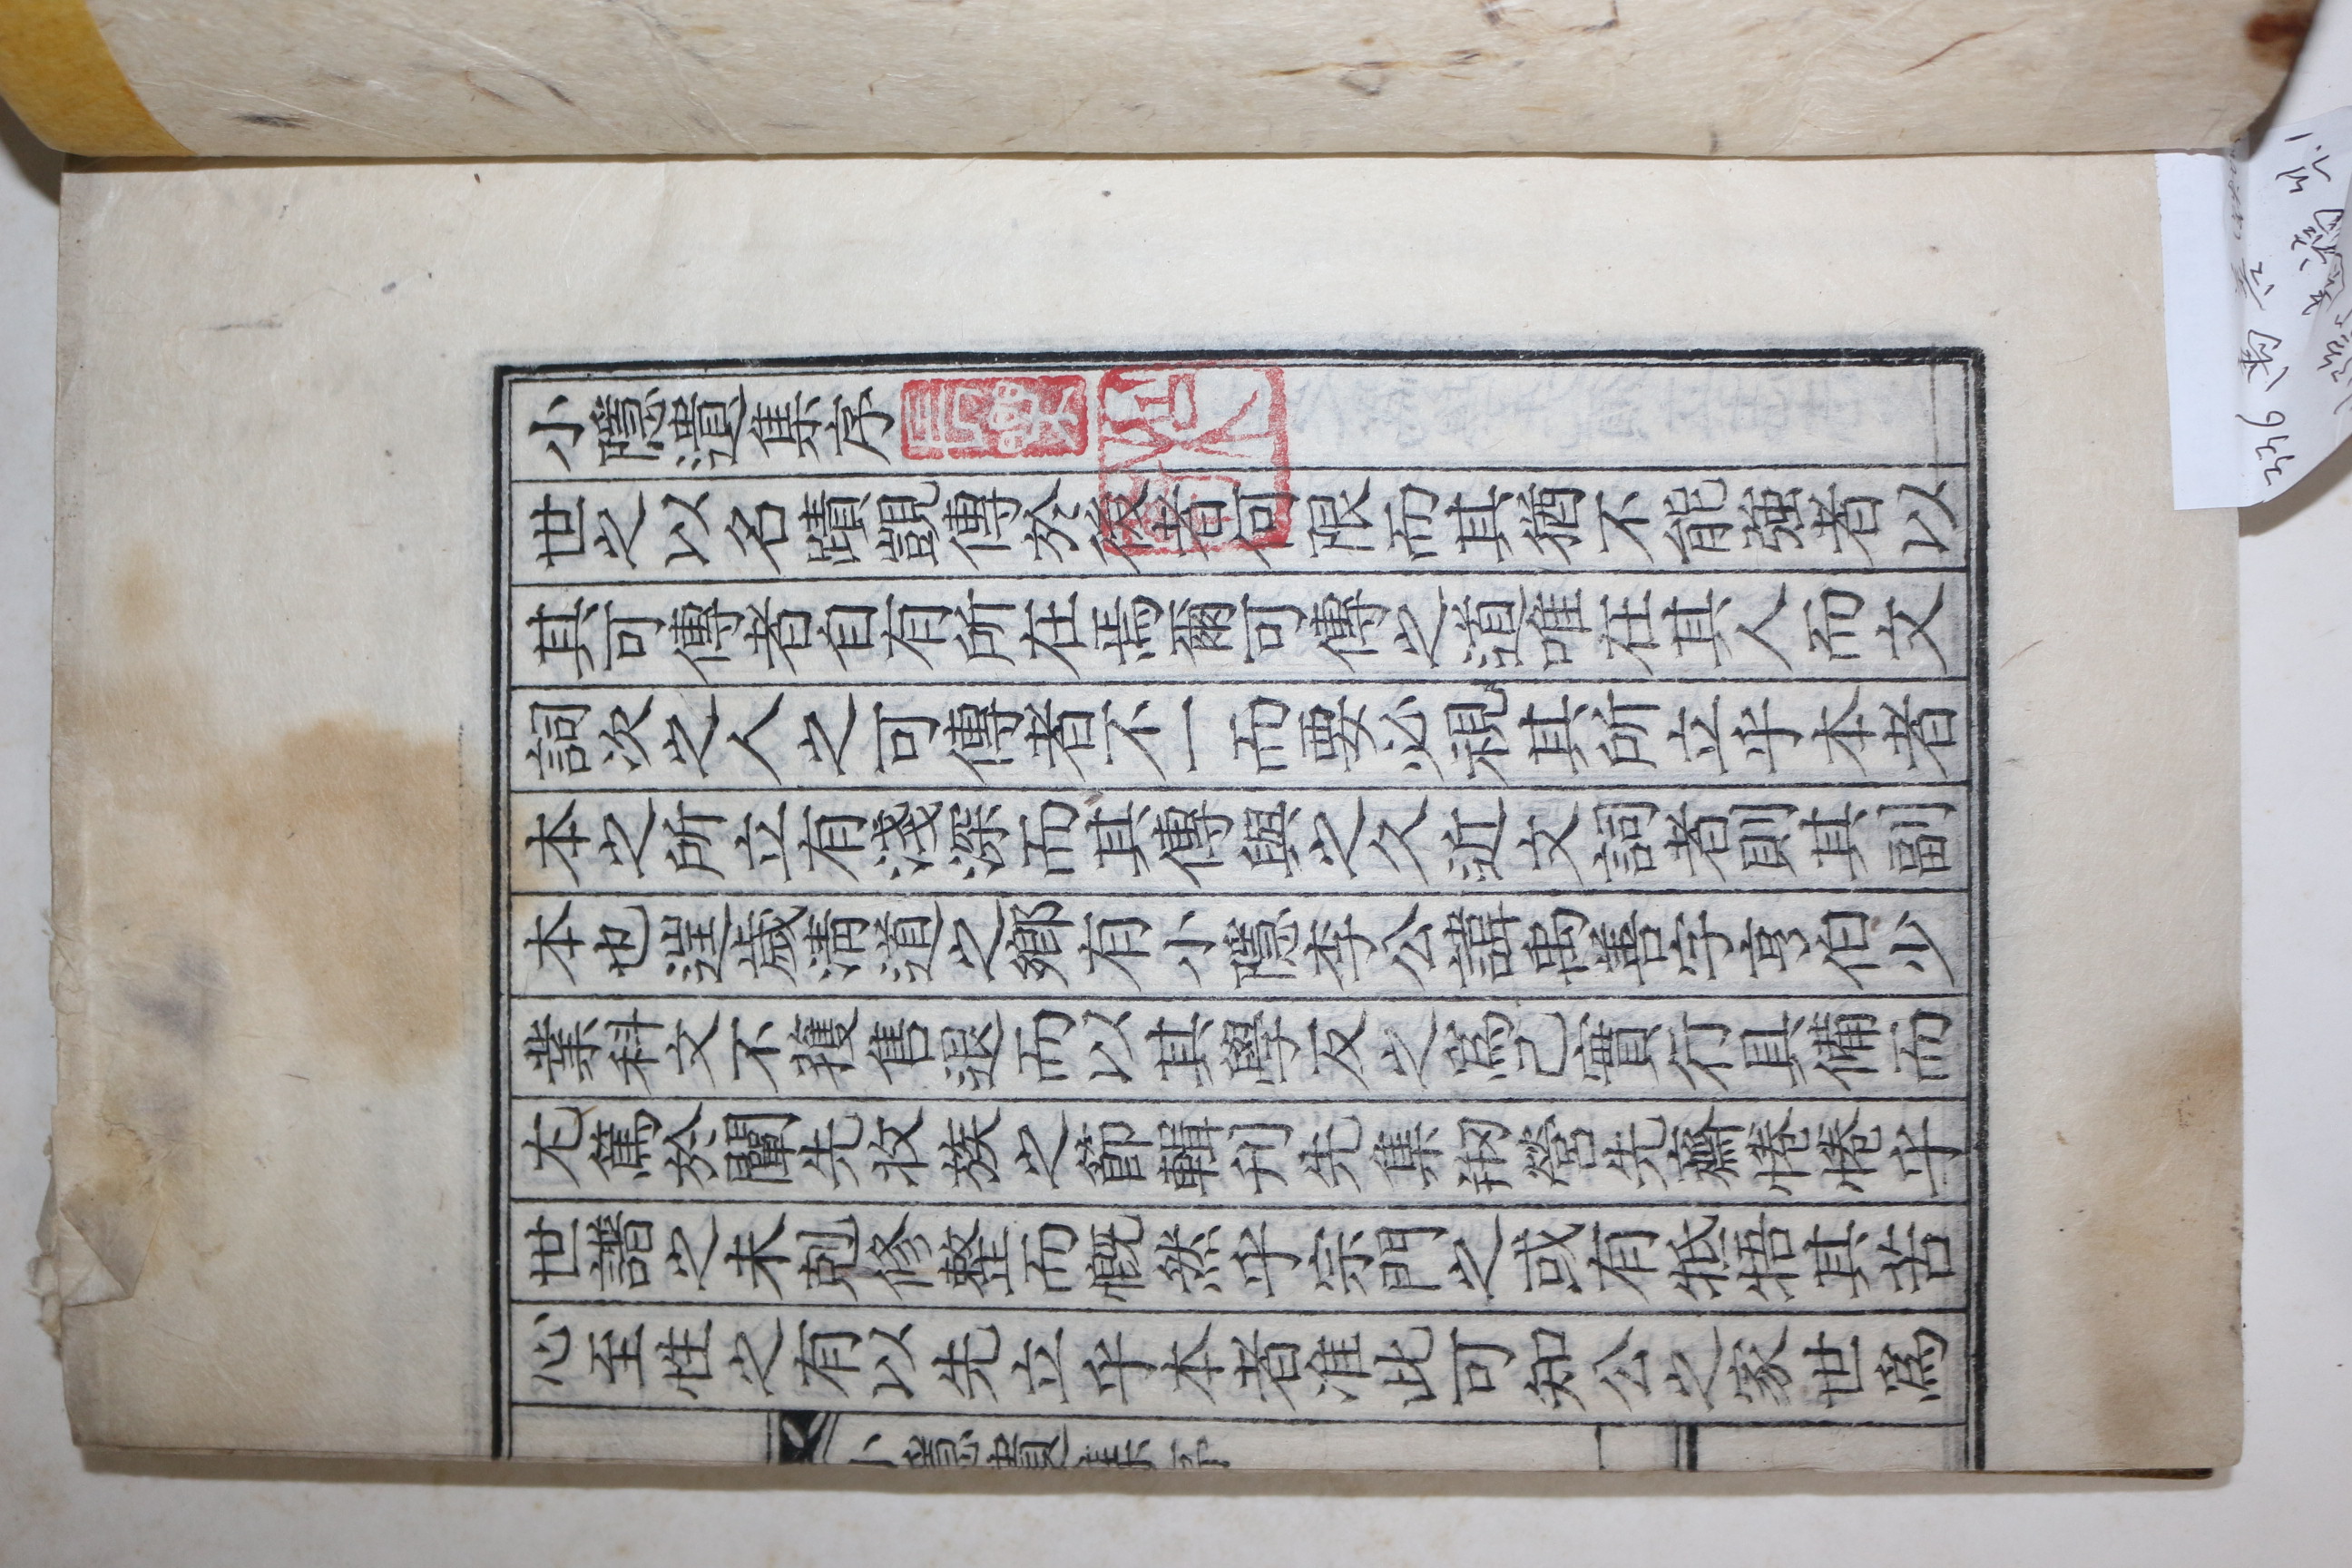 小隱遺集序
世之以名蹟覬傳於後者何限而其猶不能強者以
其可傳者自有所在焉爾可傳之道唯在其人而文
詞次之人之可傳者不一而要必視其所立乎本者
本之所立有淺深而其傳與之久近文詞者則其副
本也逕歲清道之鄉有小隱李公諱禹善字亨伯少
業科文不獲售退而以其學友之爲己實行具備而
尤篤於闡先收族之節輯刊先集刱營先齋惓惓乎
世譜之未剋修整而慨然乎宗門之或有牴牾其苦
心至性之有以先立乎本者准此可知公之家世爲
小隱遺集序
3346